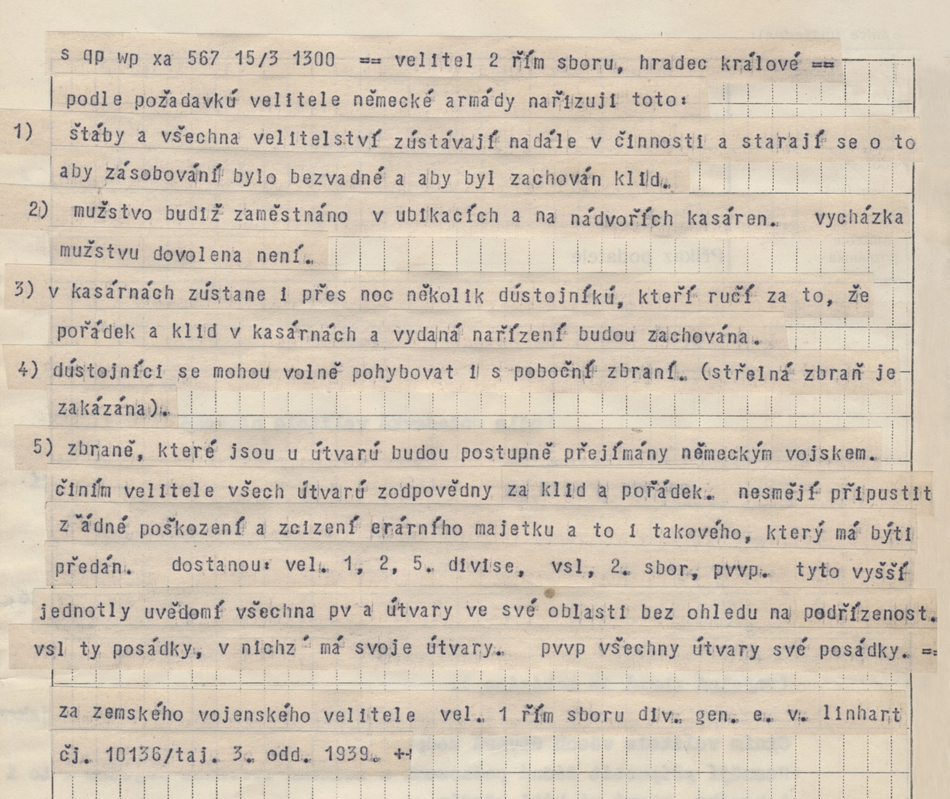 s qp wp xa 567 15/3 1300 == velitel 2 řím sboru, hradec králové ==
podle požadavkú velitele německé armády nařizuji toto:
1) štáby a všechna velitelství zústávají nadále v činnosti a starají se o to
aby zásobování bylo bezvadné a aby byl zachován klid.
2) mužstvo budiž zaměstnáno v ubikacích a na nádvořích kasáren. vycházka
mužstvu dovolena není.
3) v kasárnách zústane i přes noc několik dústojníkú, kteří ručí za to, že
pořádek a klid v kasárnách a vydaná nařízení budou zachována.
4) dústojníci se mohou volně pohybovat i s poboční zbraní. (střelná zbraň je
zakázána).
5) zbraně, které jsou u útvarú budou postupně přejímány německým vojskem.
činím velitele všech útvarú zodpovědny za klid a pořádek. nesmějí připustit
z ádné poškození a zcizení erárního majetku a to i takového, který má býti
předán. dostanou: vel. 1, 2, 5. divise, vsl, 2. sbor, pvvp. tyto vyšší
jednotly uvědomí všechna pv a útvary ve své oblasti bez ohledu na podřízenost.
vsl ty posádky, v nichz ́ má svoje útvary. pvvp všechny útvary své posádky. ==
za zemského vojenského velitele vel. 1 řím sboru div. gen. e. v. linhart
čj. 10136/taj. 3. odd. 1939. ++